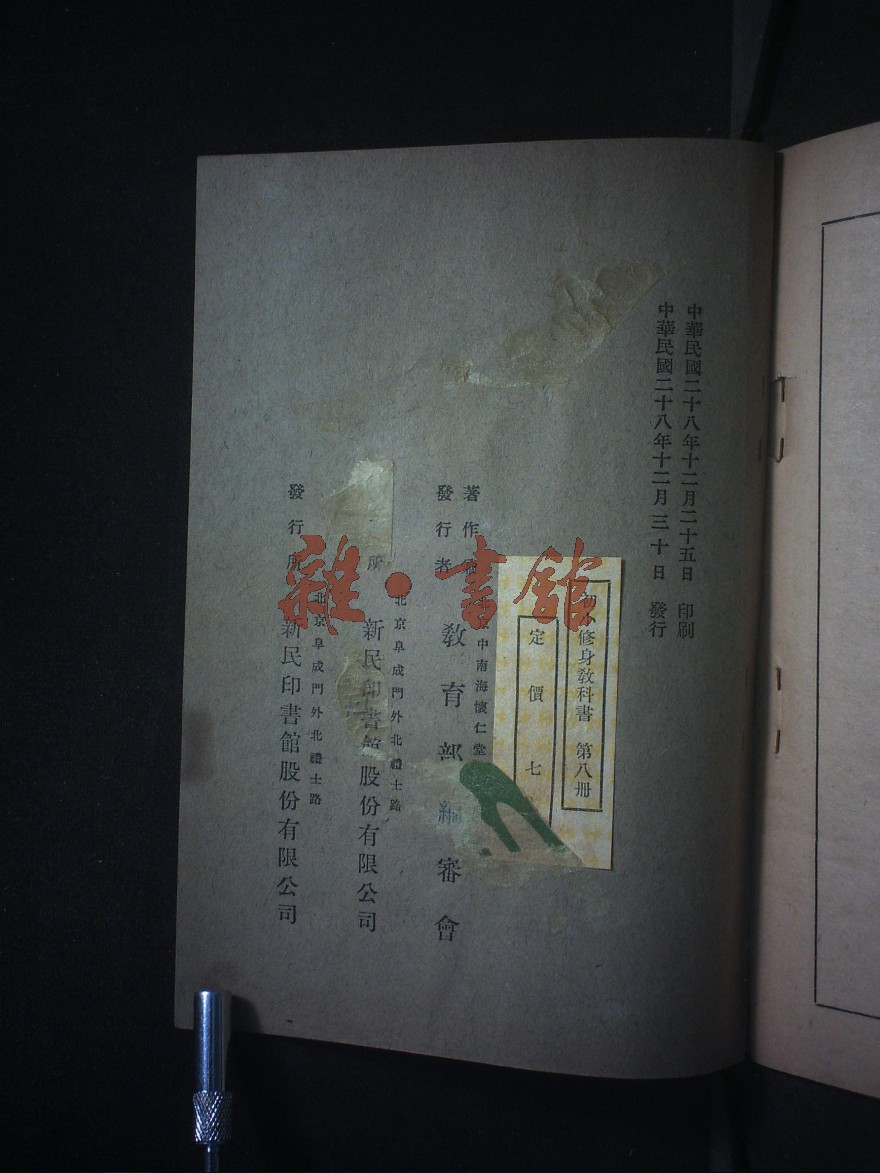 中華民國二十八年十二月二十五日 印刷
中華民國二十八年十二月三十日 發行
初小修身教科書 第八册
定價七
著作
中南海懷仁堂
發行者 教育部編審會
北京阜成門外北禮士路
所 新民印書館股份有限公司
北京阜成門外北禮士路
發行所 新民印書館股份有限公司
雜·書館